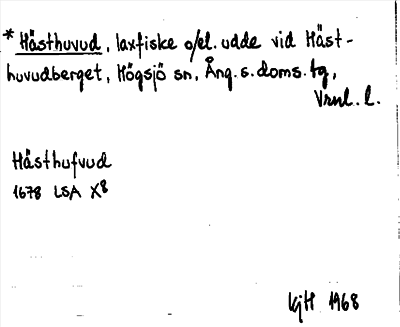 * Hästhuvud, laxfiske o/el. udde vid Häst-
huvudberget, Högsjö sn, Ång. s. doms. tg,
Vrnl. l.
Hästhufvud
1678 LSA X8
KjH 1968